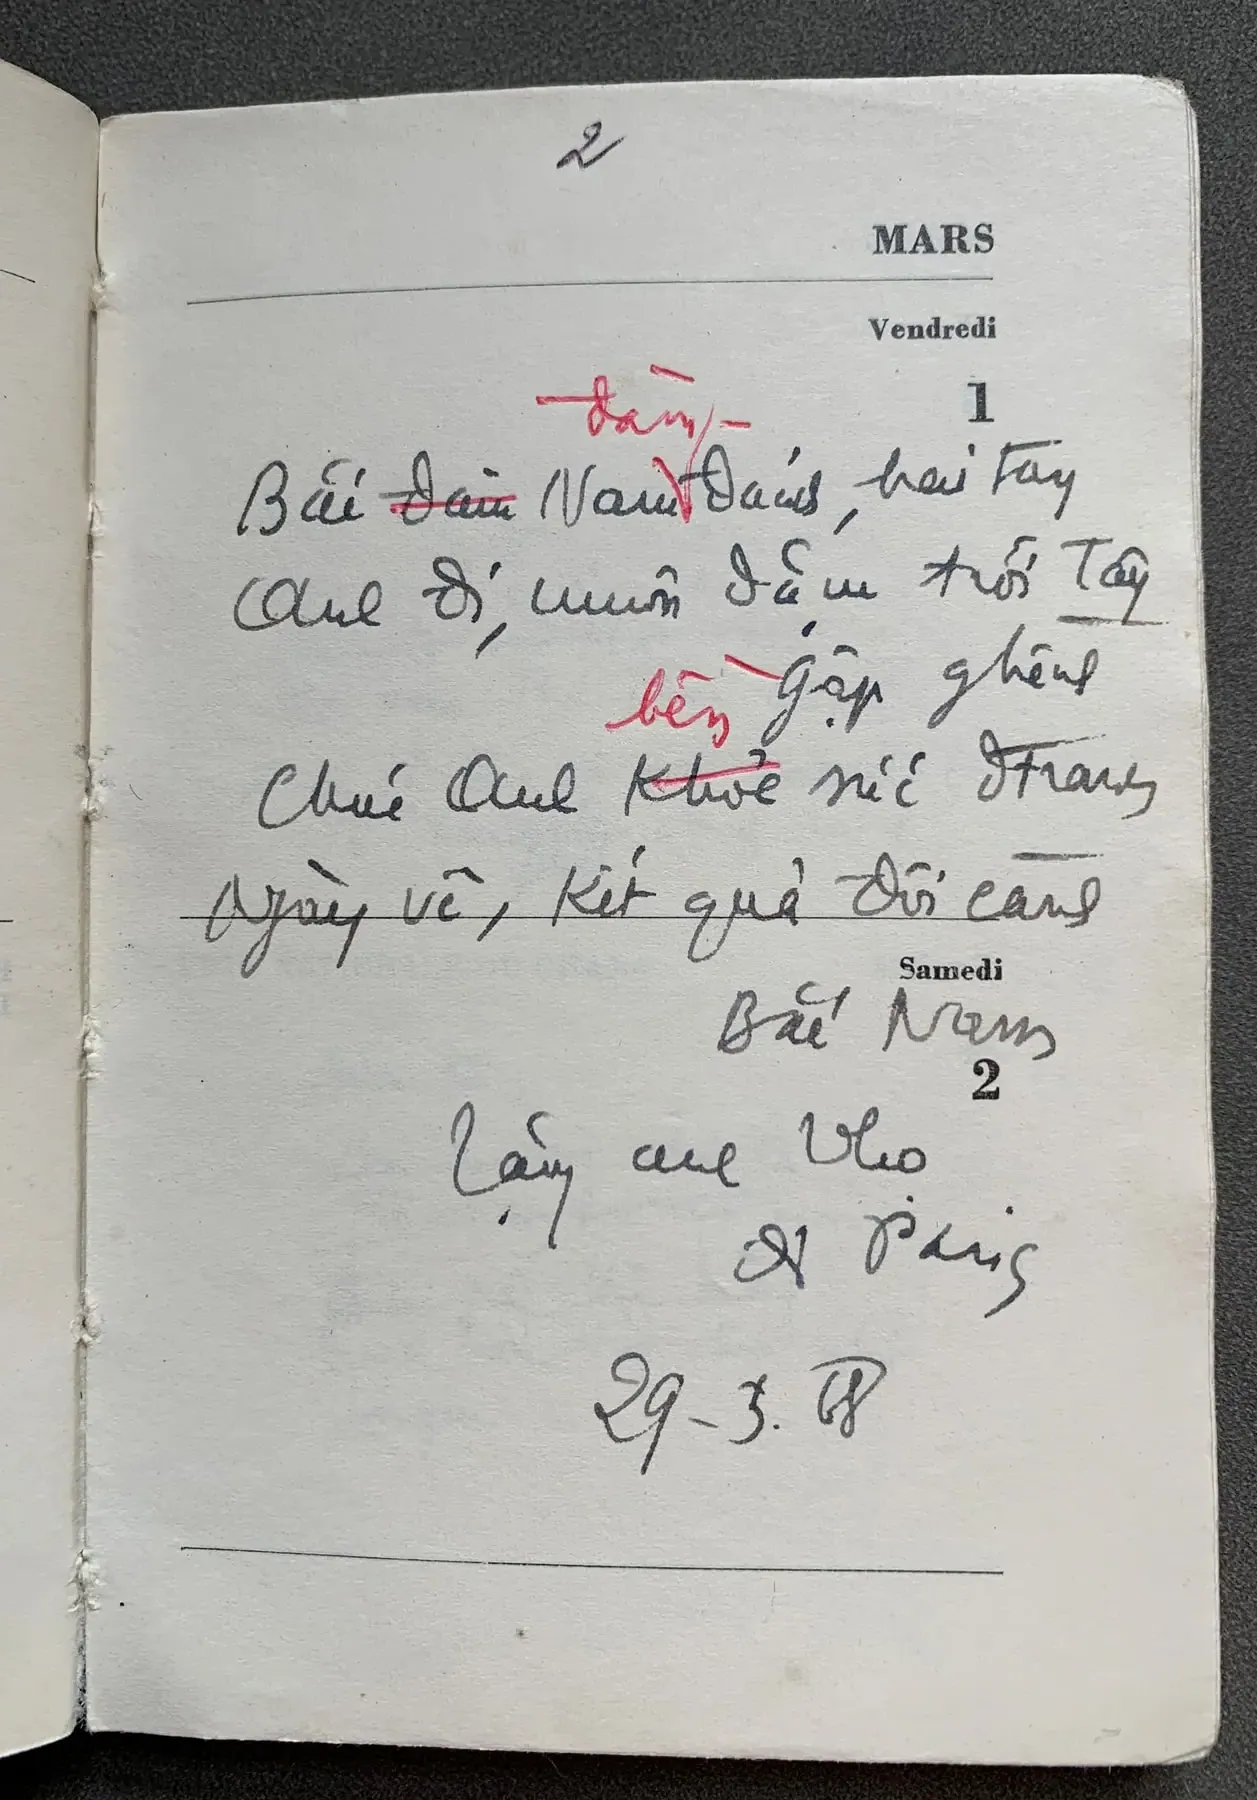 2
MARS
Vendredi
1
đàm
Bắc đàm Nam đánh, hai tay
Anh đi, muôn dặm trời Tây
Gập ghềnh
bền
Chúc Anh khỏe sức đường
Ngày về, kết quả đôi cành
Samedi
Bắc Nam
2
Tặng anh Thọ
đi Paris
29-3.68